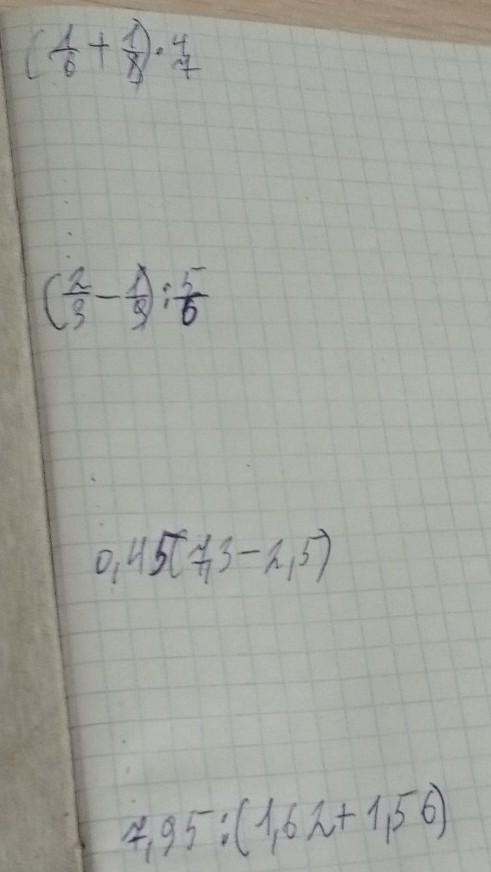 (1/6 + 1/8) · 4/7
(2/3 − 1/9) : 5/6
0,45(7,3 − 2,5)
7,95 : (1,62 + 1,56)